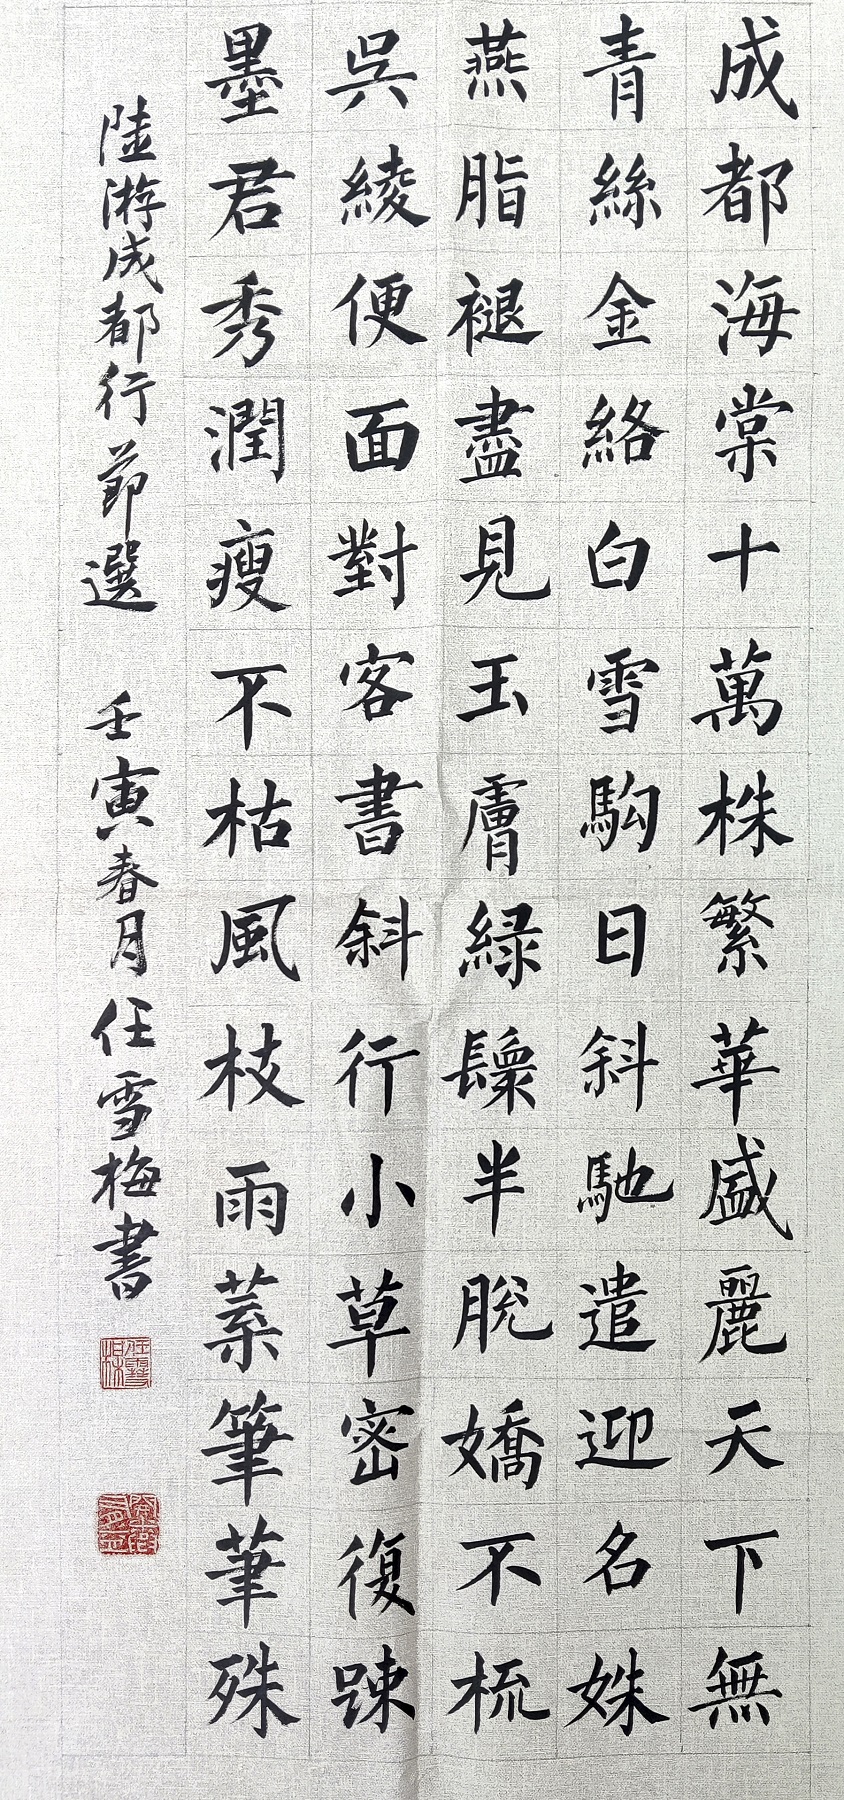 成都海棠十萬株繁華盛麗天下無
青絲金絡白雪駒日斜馳遣迎名姝
燕脂褪盡見玉膚綠鬟半脫嬌不梳
吳綾便面對客書斜行小草密復踈
墨君秀潤瘦不枯風枝雨葉筆筆殊
陸游成都行節選 壬寅春月任雪梅書